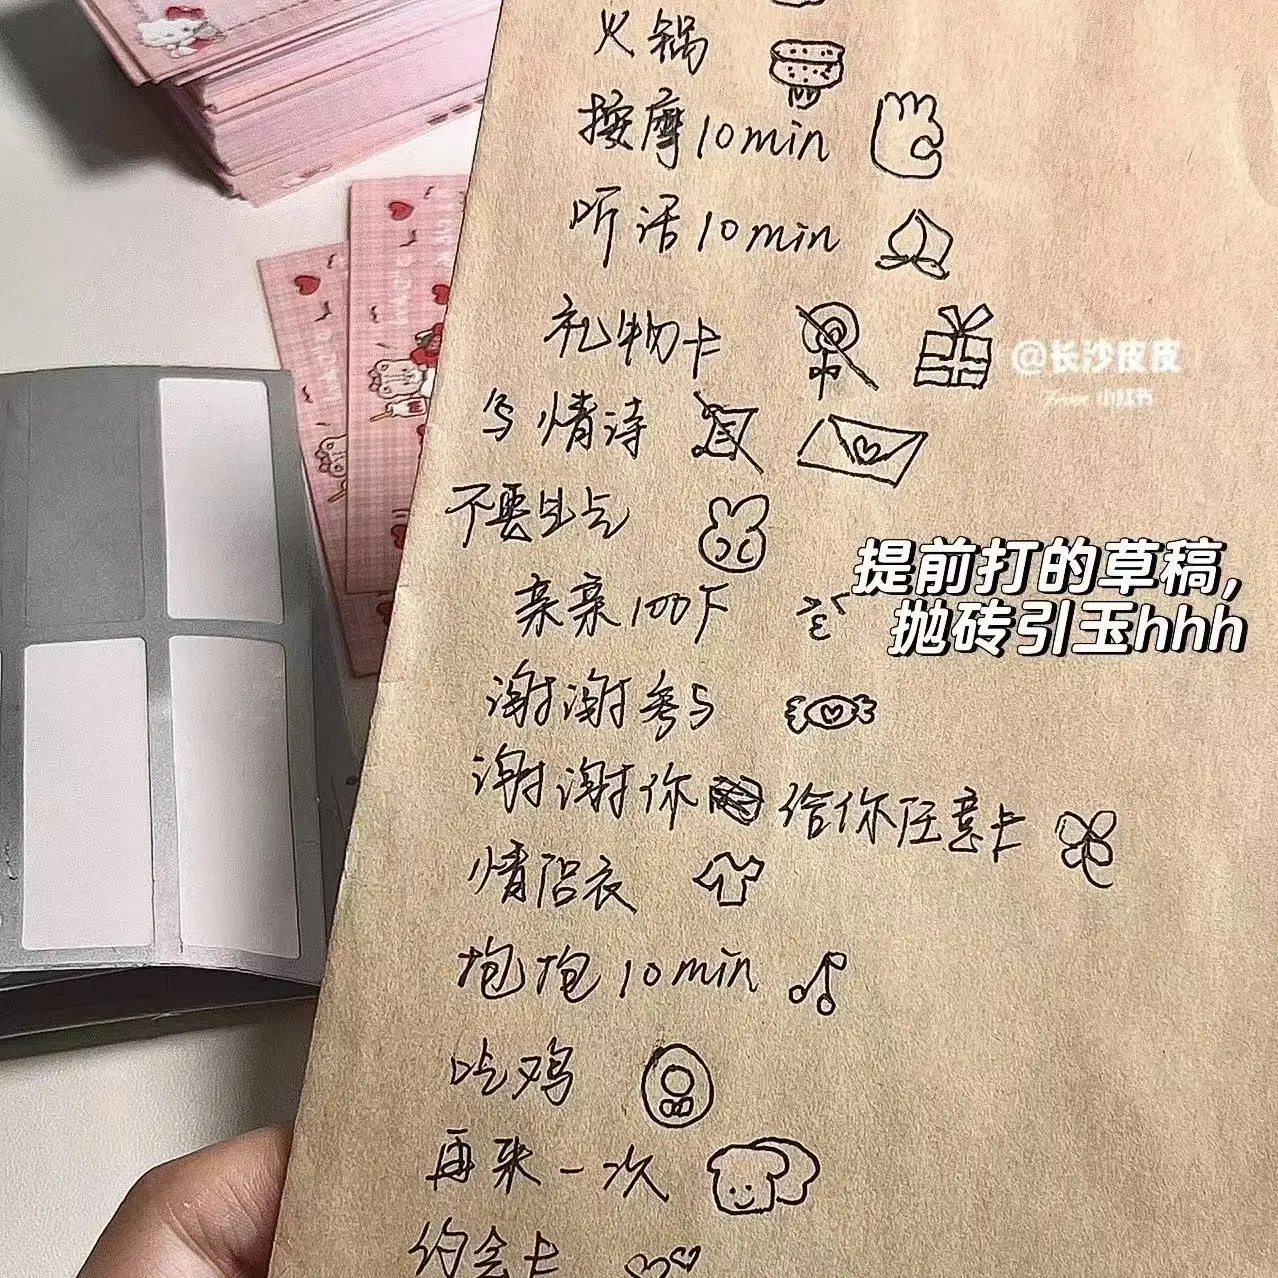 火锅
按摩10min
听话10min
礼物卡
@长沙皮皮
小红书
写情诗
不要生气
提前打的草稿,
抛砖引玉hhh
亲亲100下
谢谢参与
谢谢你 给你任意卡
情侣衣
抱抱10min
吃鸡
再来一次
约会卡